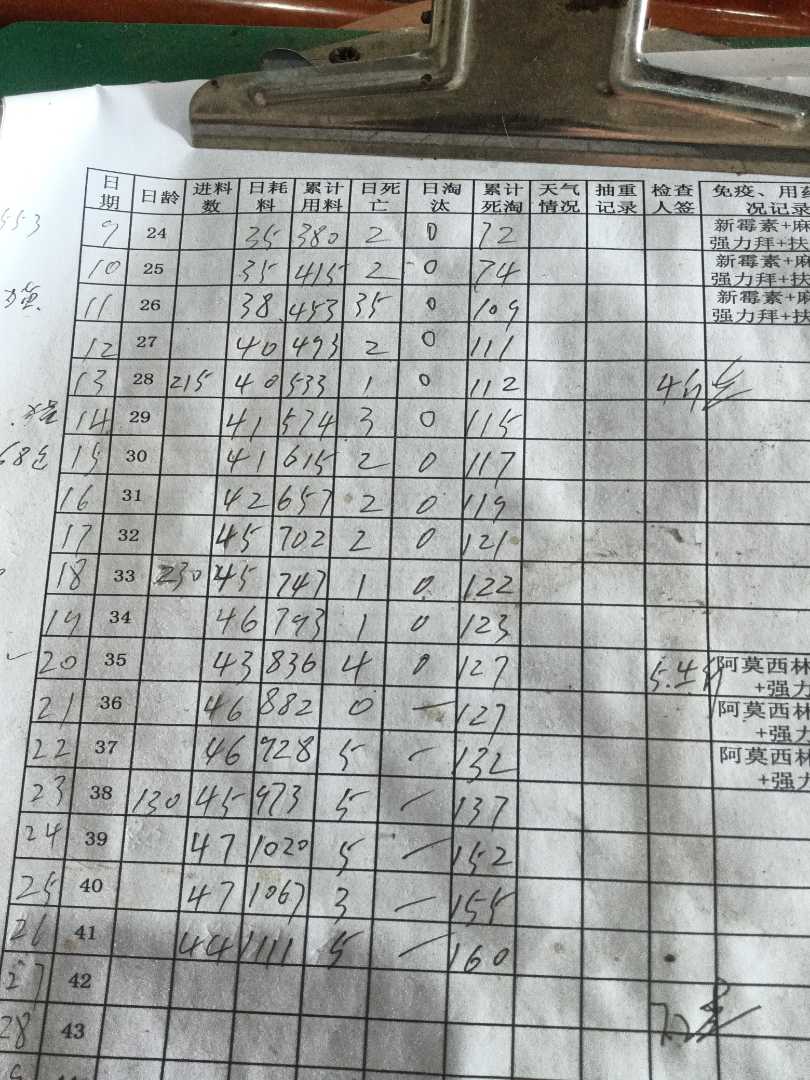 日期 日龄 进料数 日耗料 累计用料 日死亡 日淘汰 累计死淘 天气情况 抽重记录 检查人签 免疫、用药 况记录
9 24 35 380 2 0 72 新霉素+麻 强力拜+扶
10 25 35 415 2 0 74 新霉素+麻 强力拜+扶
11 26 38 453 35 0 109 新霉素+麻 强力拜+扶
12 27 40 493 2 0 111
13 28 215 40 533 1 0 112
14 29 41 574 3 0 115
15 30 41 615 2 0 117
16 31 42 657 2 0 119
17 32 45 702 2 0 121
18 33 230 45 747 1 0 122
19 34 46 793 1 0 123
20 35 43 836 4 0 127 阿莫西林 +强力
21 36 46 882 0 — 127 阿莫西林 +强力
22 37 46 928 5 — 132 阿莫西林 +强力
23 38 130 45 973 5 — 137
24 39 47 1020 5 — 152
25 40 47 1067 3 — 155
26 41 44 1111 5 — 160
27 42
28 43